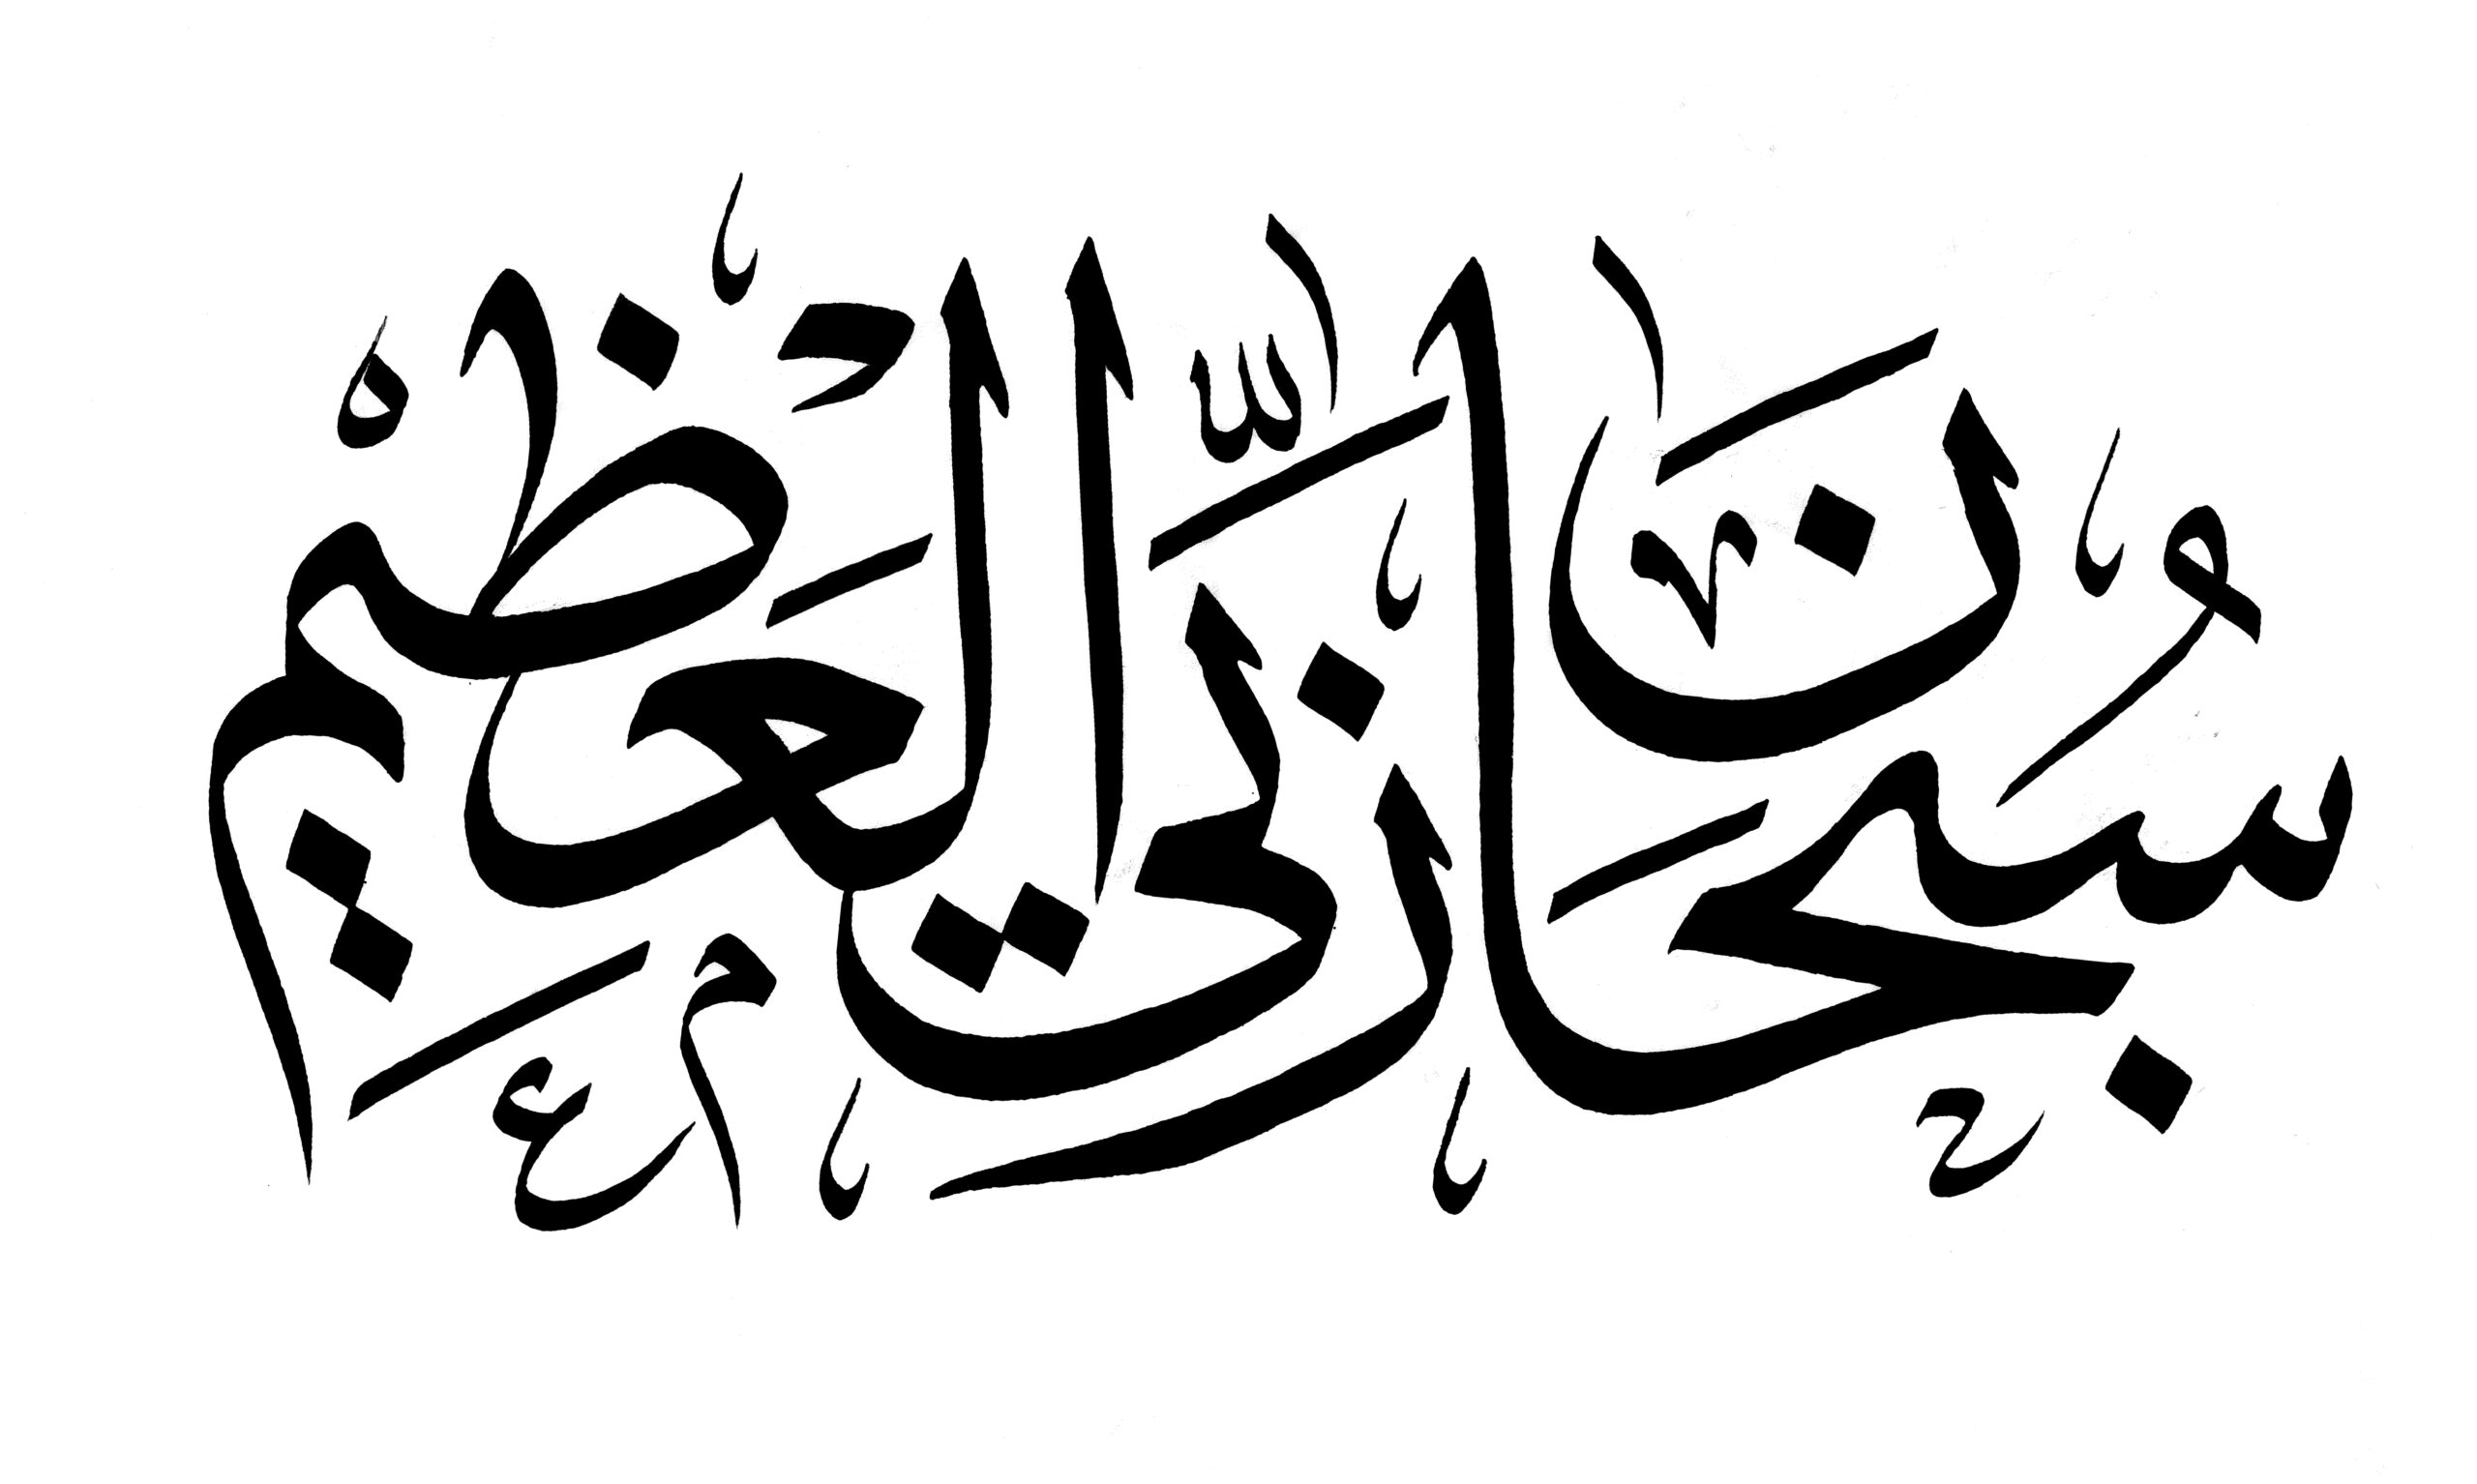 سُبْحَانَ رَبِّيَ الْعَظِيمِ